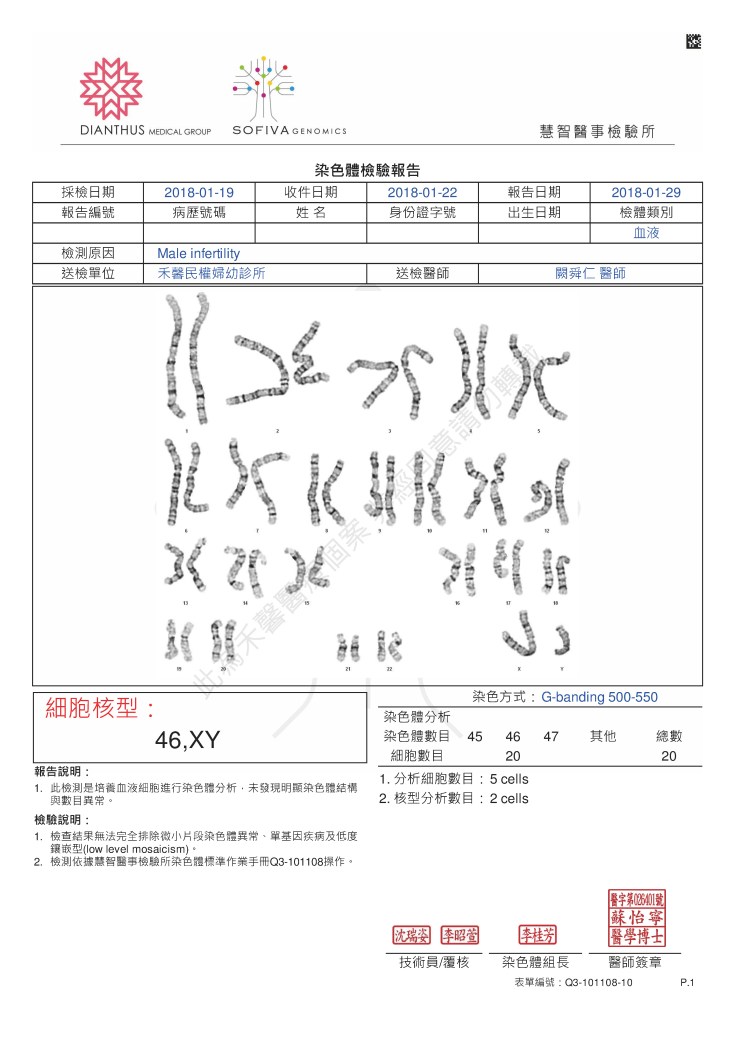 DIANTHUS MEDICAL GROUP
SOFIVA GENOMICS
慧智醫事檢驗所
染色體檢驗報告
採檢日期 2018-01-19 收件日期 2018-01-22 報告日期 2018-01-29
報告編號 病歷號碼 姓名 身份證字號 出生日期 檢體類別
血液
檢測原因 Male infertility
送檢單位 禾馨民權婦幼診所 送檢醫師 闕舜仁 醫師
1 2 3 4 5
6 7 8 9 10 11 12
13 14 15 16 17 18
19 20 21 22 X Y
細胞核型：
46,XY
染色方式：G-banding 500-550
染色體分析
染色體數目 45 46 47 其他 總數
細胞數目 20 20
1. 分析細胞數目：5 cells
2. 核型分析數目：2 cells
報告說明：
1. 此檢測是培養血液細胞進行染色體分析，未發現明顯染色體結構
與數目異常。
檢驗說明：
1. 檢查結果無法完全排除微小片段染色體異常、單基因疾病及低度
鑲嵌型(low level mosaicism)。
2. 檢測依據慧智醫事檢驗所染色體標準作業手冊Q3-101108操作。
沈瑞姿 李昭萱 李桂芳
醫字第026401號
蘇怡寧
醫學博士
技術員/覆核 染色體組長 醫師簽章
表單編號：Q3-101108-10 P.1